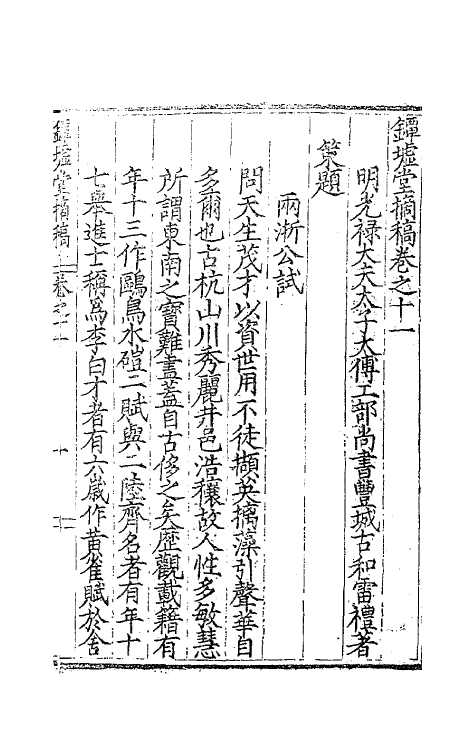 鐔墟堂摘稿卷之十一
明光禄大夫太子太傅工部尚書豐城古和雷禮著
策題
兩浙公試
問天生茂才以資世用不徒擷英摛藻引聲華自
多爾也古杭山川秀麗井邑浩穰故人性多敏慧
所謂東南之寶難盡蓋自古侈之矣歷觀載籍有
年十三作鷗鳥水磑二賦與二陸齊名者有年十
七舉進士稱爲李白才者有六歲作黄雀賦於舍
鐔墟堂摘稿 卷之十一